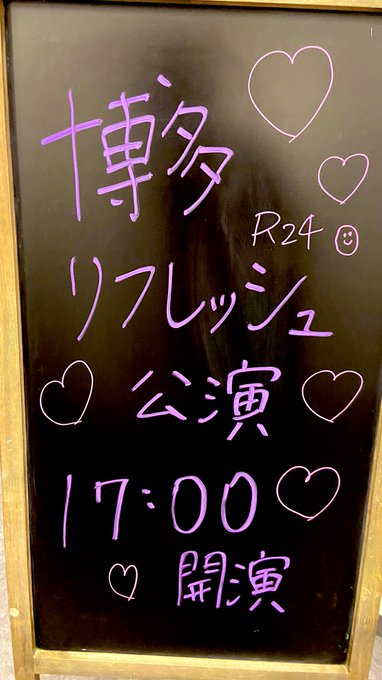 博多
R24
リフレッシュ
公演
17:00
開演